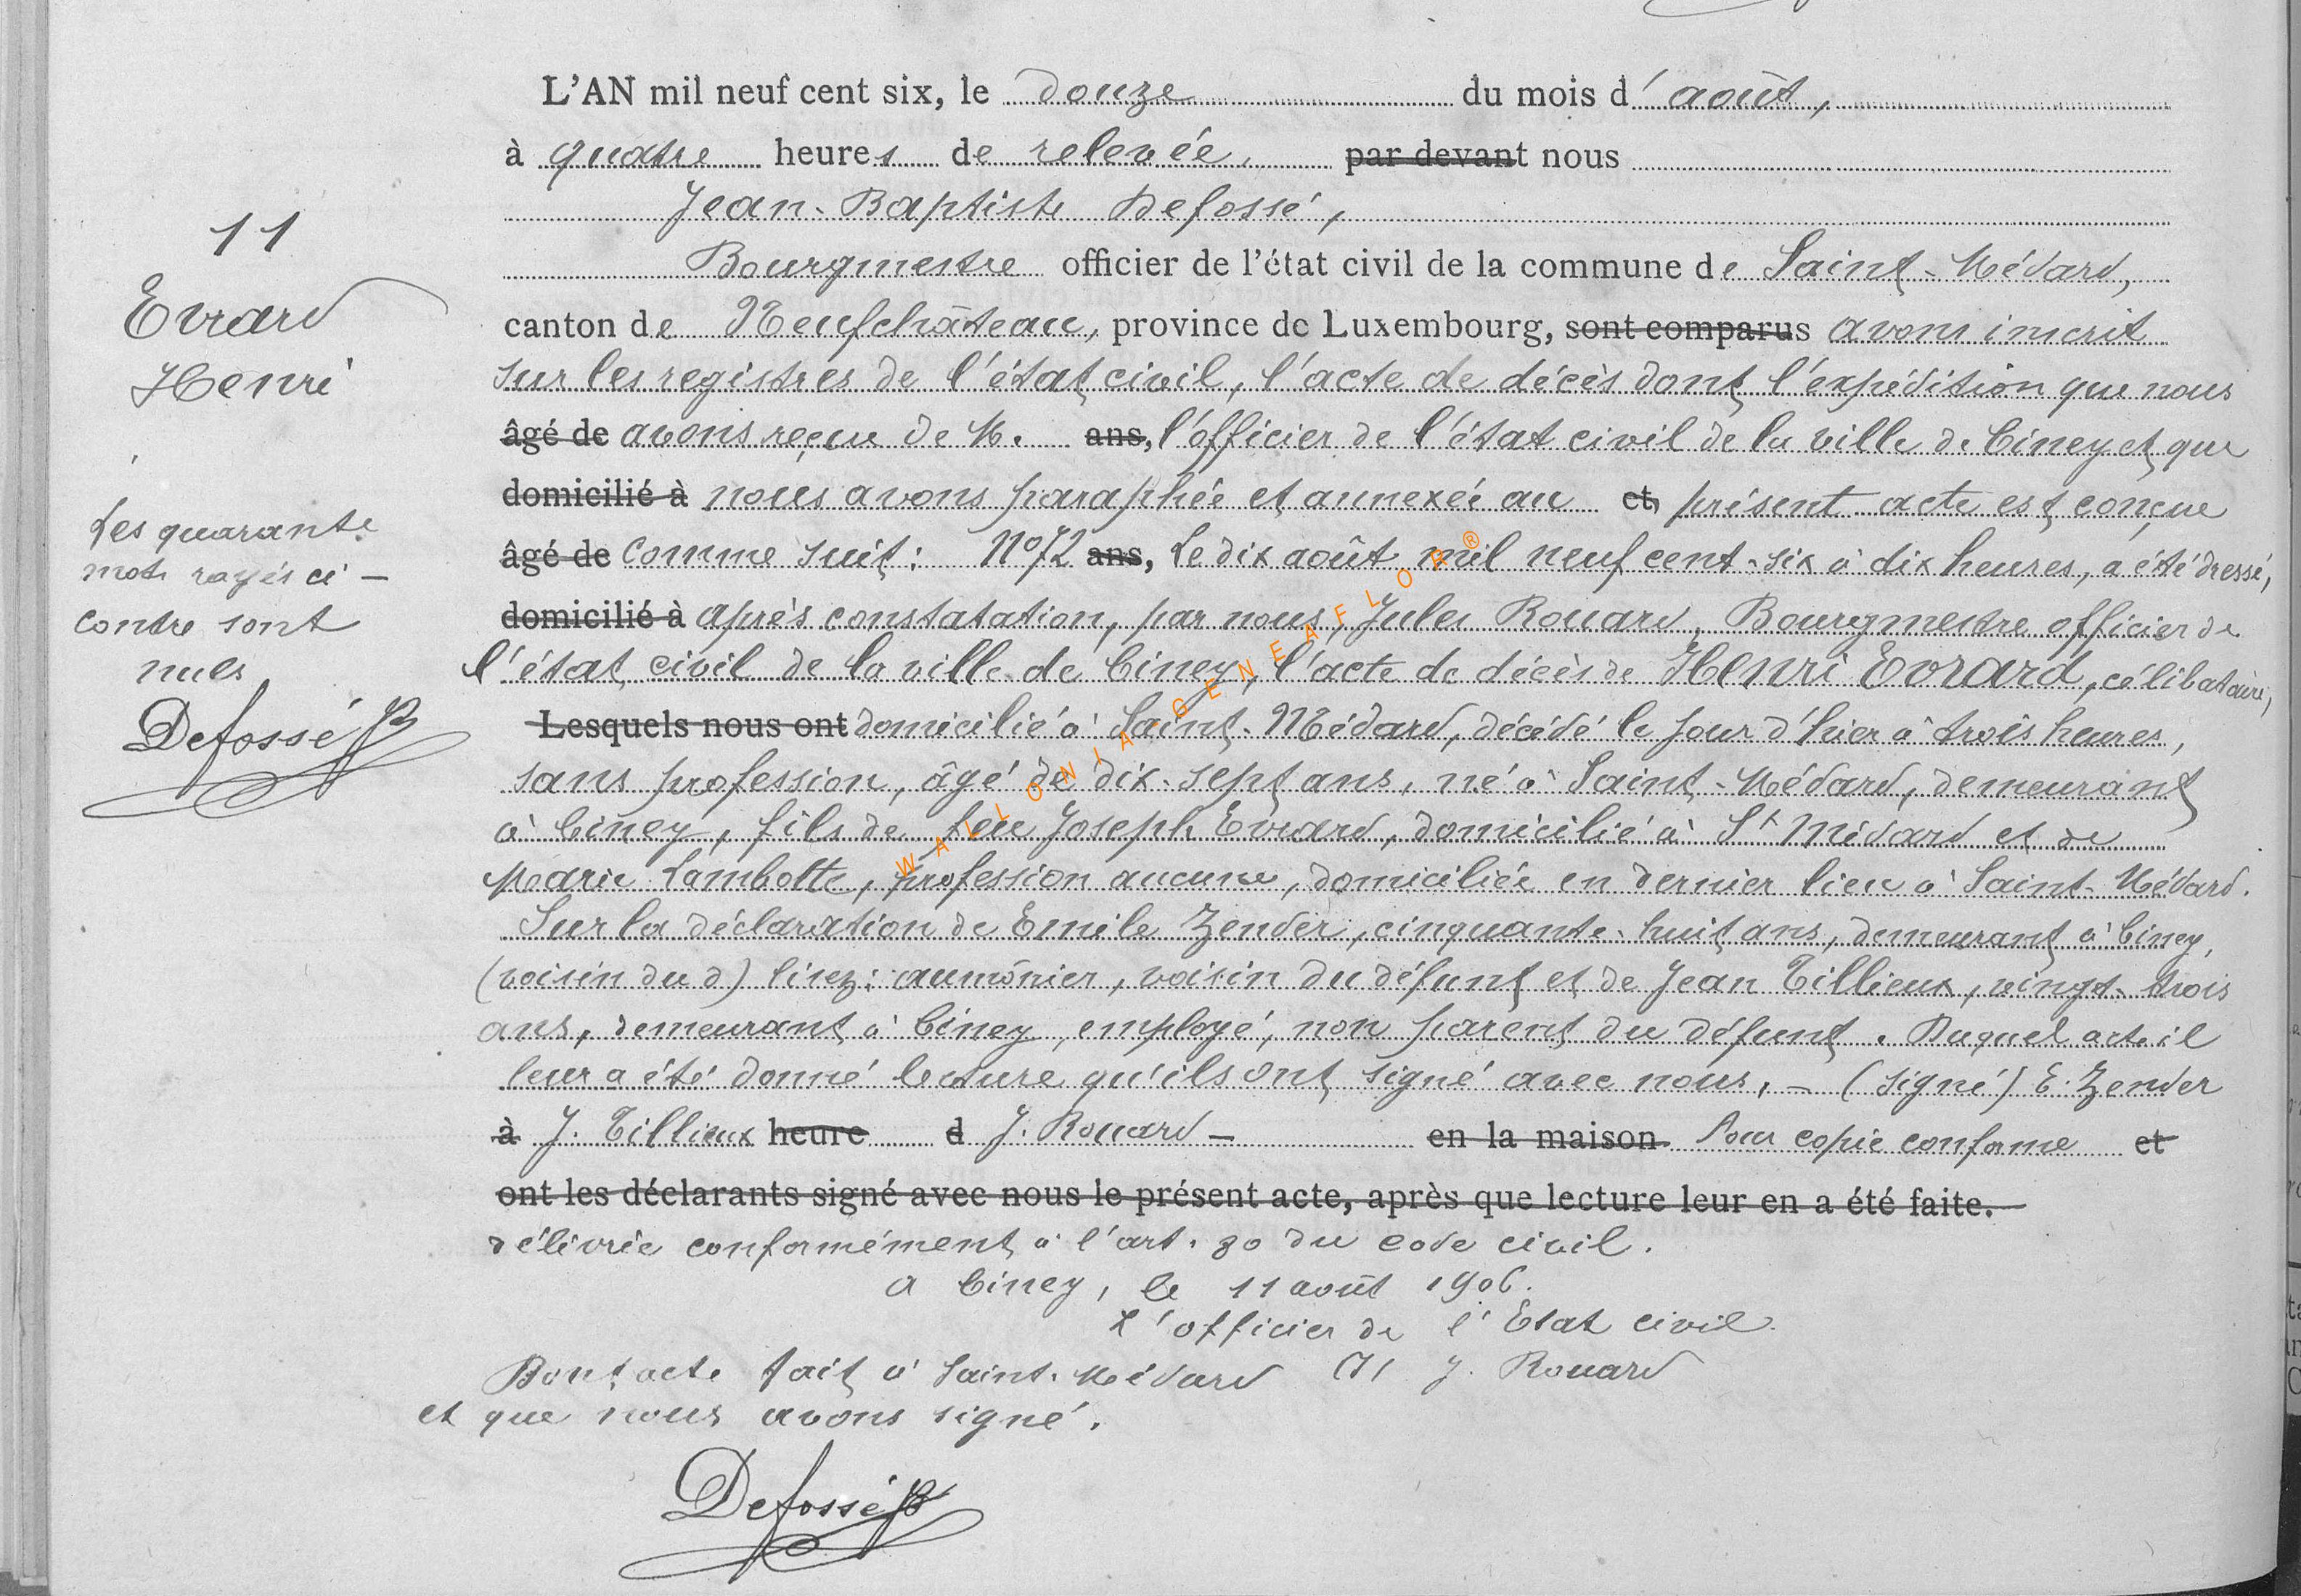 L'AN mil neuf cent six, le douze du mois d'août,
à quatre heures de relevée, par devant nous
Jean-Baptiste Defossé,
Bourgmestre officier de l'état civil de la commune de Saint-Médard,
canton de Neufchâteau, province de Luxembourg, sont comparus avons inscrit
sur les registres de l'état civil, l'acte de décès dont l'expédition que nous
âgé de avons reçue de M. ans, l'officier de l'état civil de la ville de Ciney et que
domicilié à nous avons paraphée et annexée au et présent acte est conçue
âgé de comme suit : N° 72 ans, Le dix août mil neuf cent-six à dix heures, a été dressé,
domicilié à après constatation, par nous, Jules Rouard, Bourgmestre officier de
l'état civil de la ville de Ciney, l'acte de décès de Henri Evrard, célibataire,
Lesquels nous ont domicilié à Saint-Médard, décédé le jour d'hier à trois heures,
sans profession, âgé de dix-sept ans, né à Saint-Médard, demeurant
à Ciney, fils de feu Joseph Evrard, domicilié à St Médard et de
Marie Lambotte, profession aucune, domiciliée en dernier lieu à Saint-Médard.
Sur la déclaration de Emile Zender, cinquante-huit ans, demeurant à Ciney,
(voisin du d) lisez : aumônier, voisin du défunt et de Jean Tillieux, vingt-trois
ans, demeurant à Ciney, employé, non parent du défunt. Duquel acte il
leur a été donné lecture qu'ils ont signé avec nous. - (signé) E. Zender
à J. Tillieux heure d J. Rouard - en la maison Pour copie conforme et
ont les déclarants signé avec nous le présent acte, après que lecture leur en a été faite.
délivrée conformément à l'art. 80 du code civil.
à Ciney, le 11 août 1906.
L'officier de l'Etat civil
Dont acte fait à Saint-Médard (s) J. Rouard
et que nous avons signé.
Defossé JB
11
Evrard
Henri
Les quarante
mots rayés ci-
contre sont
nuls
Defossé JB
WALLONIA-GENEAFLOR®